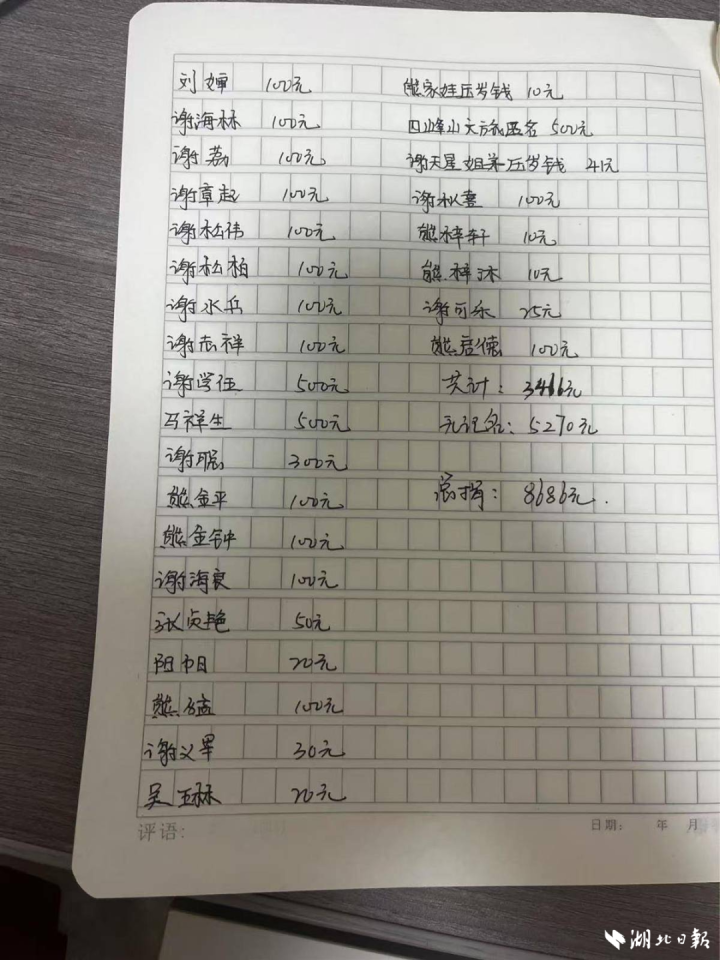 刘婵 100元
谢海林 100元
谢荔 100元
谢章起 100元
谢松伟 100元
谢松柏 100元
谢水兵 100元
谢志祥 100元
谢学伍 500元
马祥生 500元
谢聪 300元
熊金平 100元
熊金钟 100元
谢海良 100元
张贞艳 50元
阳 20元
熊 100元
谢义军 30元
吴玉林 20元
熊家娃压岁钱 10元
四峰山大方 匿名 500元
谢天星姐弟压岁钱 41元
谢秋喜 100元
熊梓轩 10元
熊梓沐 10元
谢可乐 25元
熊启德 100元
共计：3466元
无记名：5270元
总捐：8686元.
评语:
日期: 年 月
湖北日报